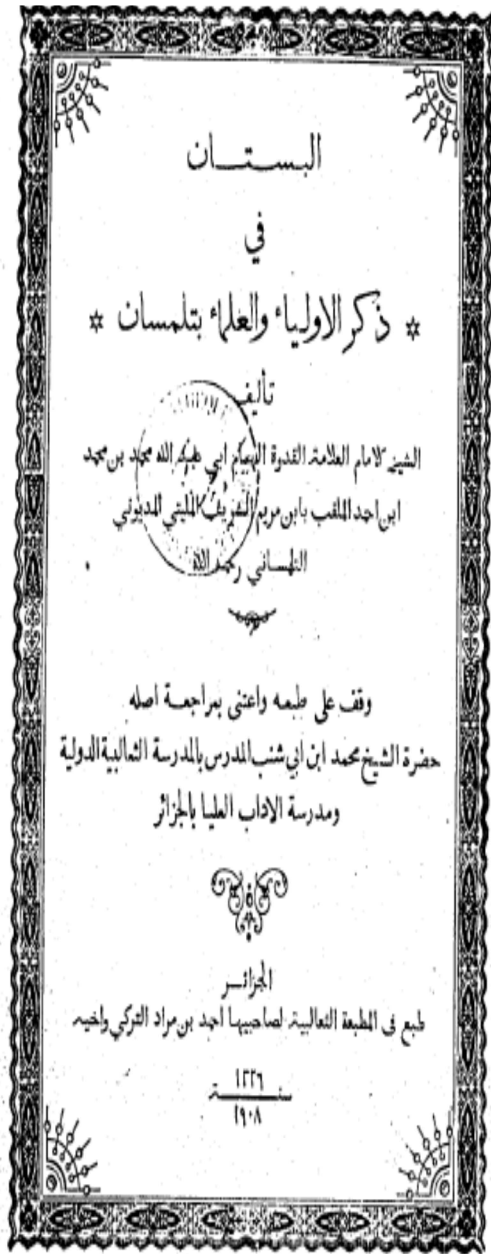 البستان
في
ذكر الاولياء والعلماء بتلمسان
تأليف
الشيخ الامام العلامة القدوة الهمام ابي عبد الله محمد بن محمد
ابن احمد الملقب بابن مريم الشريف المليتي المديوني
التلمساني رحمه الله
وقف على طبعه واعتنى بمراجعة اصله
حضرة الشيخ محمد ابن ابي شنب المدرس بالمدرسة الثعالبية الدولية
ومدرسة الاداب العليا بالجزائر
الجزائر
طبع فى المطبعة الثعالبية لصاحبيها احمد بن مراد التركي واخيه
١٣٢٦
سنة
١٩٠٨